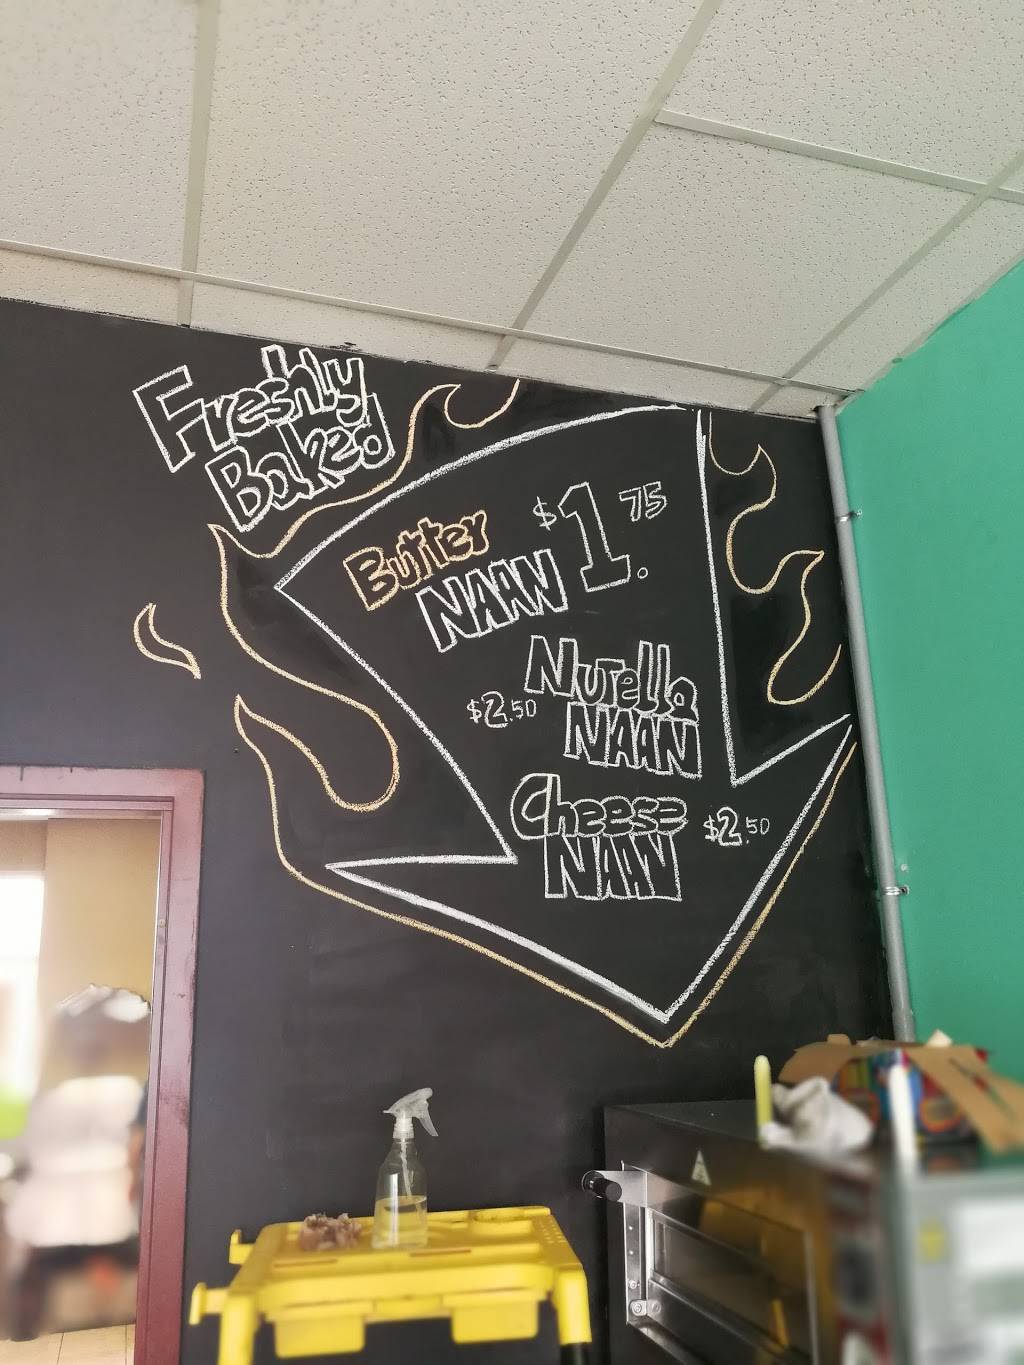 Freshly
Baked
Butter
NAAN
$1.75
Nutella
NAAN
$2.50
Cheese
NAAN
$2.50